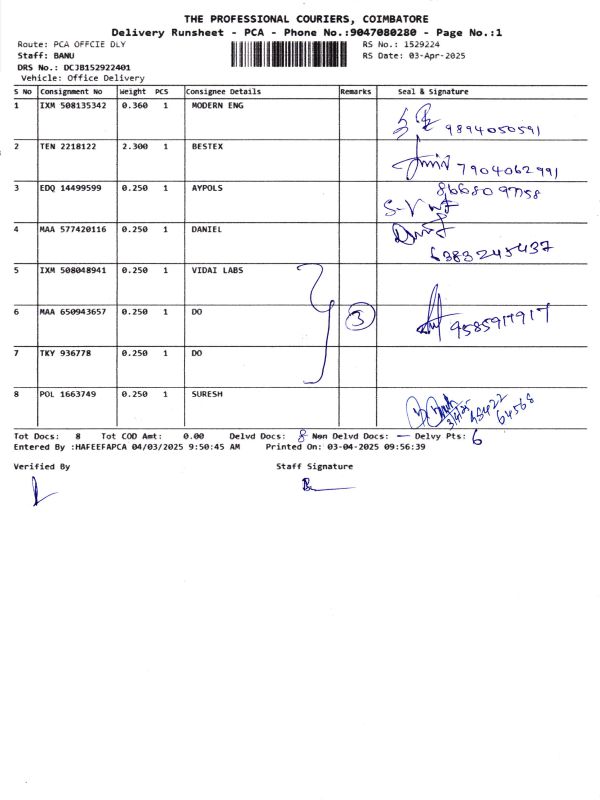 THE PROFESSIONAL COURIERS, COIMBATORE
Delivery Runsheet - PCA - Phone No.:9047080280 - Page No.:1
Route: PCA OFFCIE DLY RS No.: 1529224
Staff: BANU RS Date: 03-Apr-2025
DRS No.: DCJB152922401
Vehicle: Office Delivery
S No Consignment No Weight PCS Consignee Details Remarks Seal & Signature
1 IXM 508135342 0.360 1 MODERN ENG
9894050591
2 TEN 2218122 2.300 1 BESTEX
7904062991
3 EDQ 14499599 0.250 1 AYPOLS
8668097758
S-V
4 MAA 577420116 0.250 1 DANIEL
6383245437
5 IXM 508048941 0.250 1 VIDAI LABS
6 MAA 650943657 0.250 1 DO 3
9585917917
7 TKY 936778 0.250 1 DO
8 POL 1663749 0.250 1 SURESH
64568
Tot Docs: 8 Tot COD Amt: 0.00 Delvd Docs: 8 Non Delvd Docs: — Delvy Pts: 6
Entered By :HAFEEFAPCA 04/03/2025 9:50:45 AM Printed On: 03-04-2025 09:56:39
Verified By Staff Signature